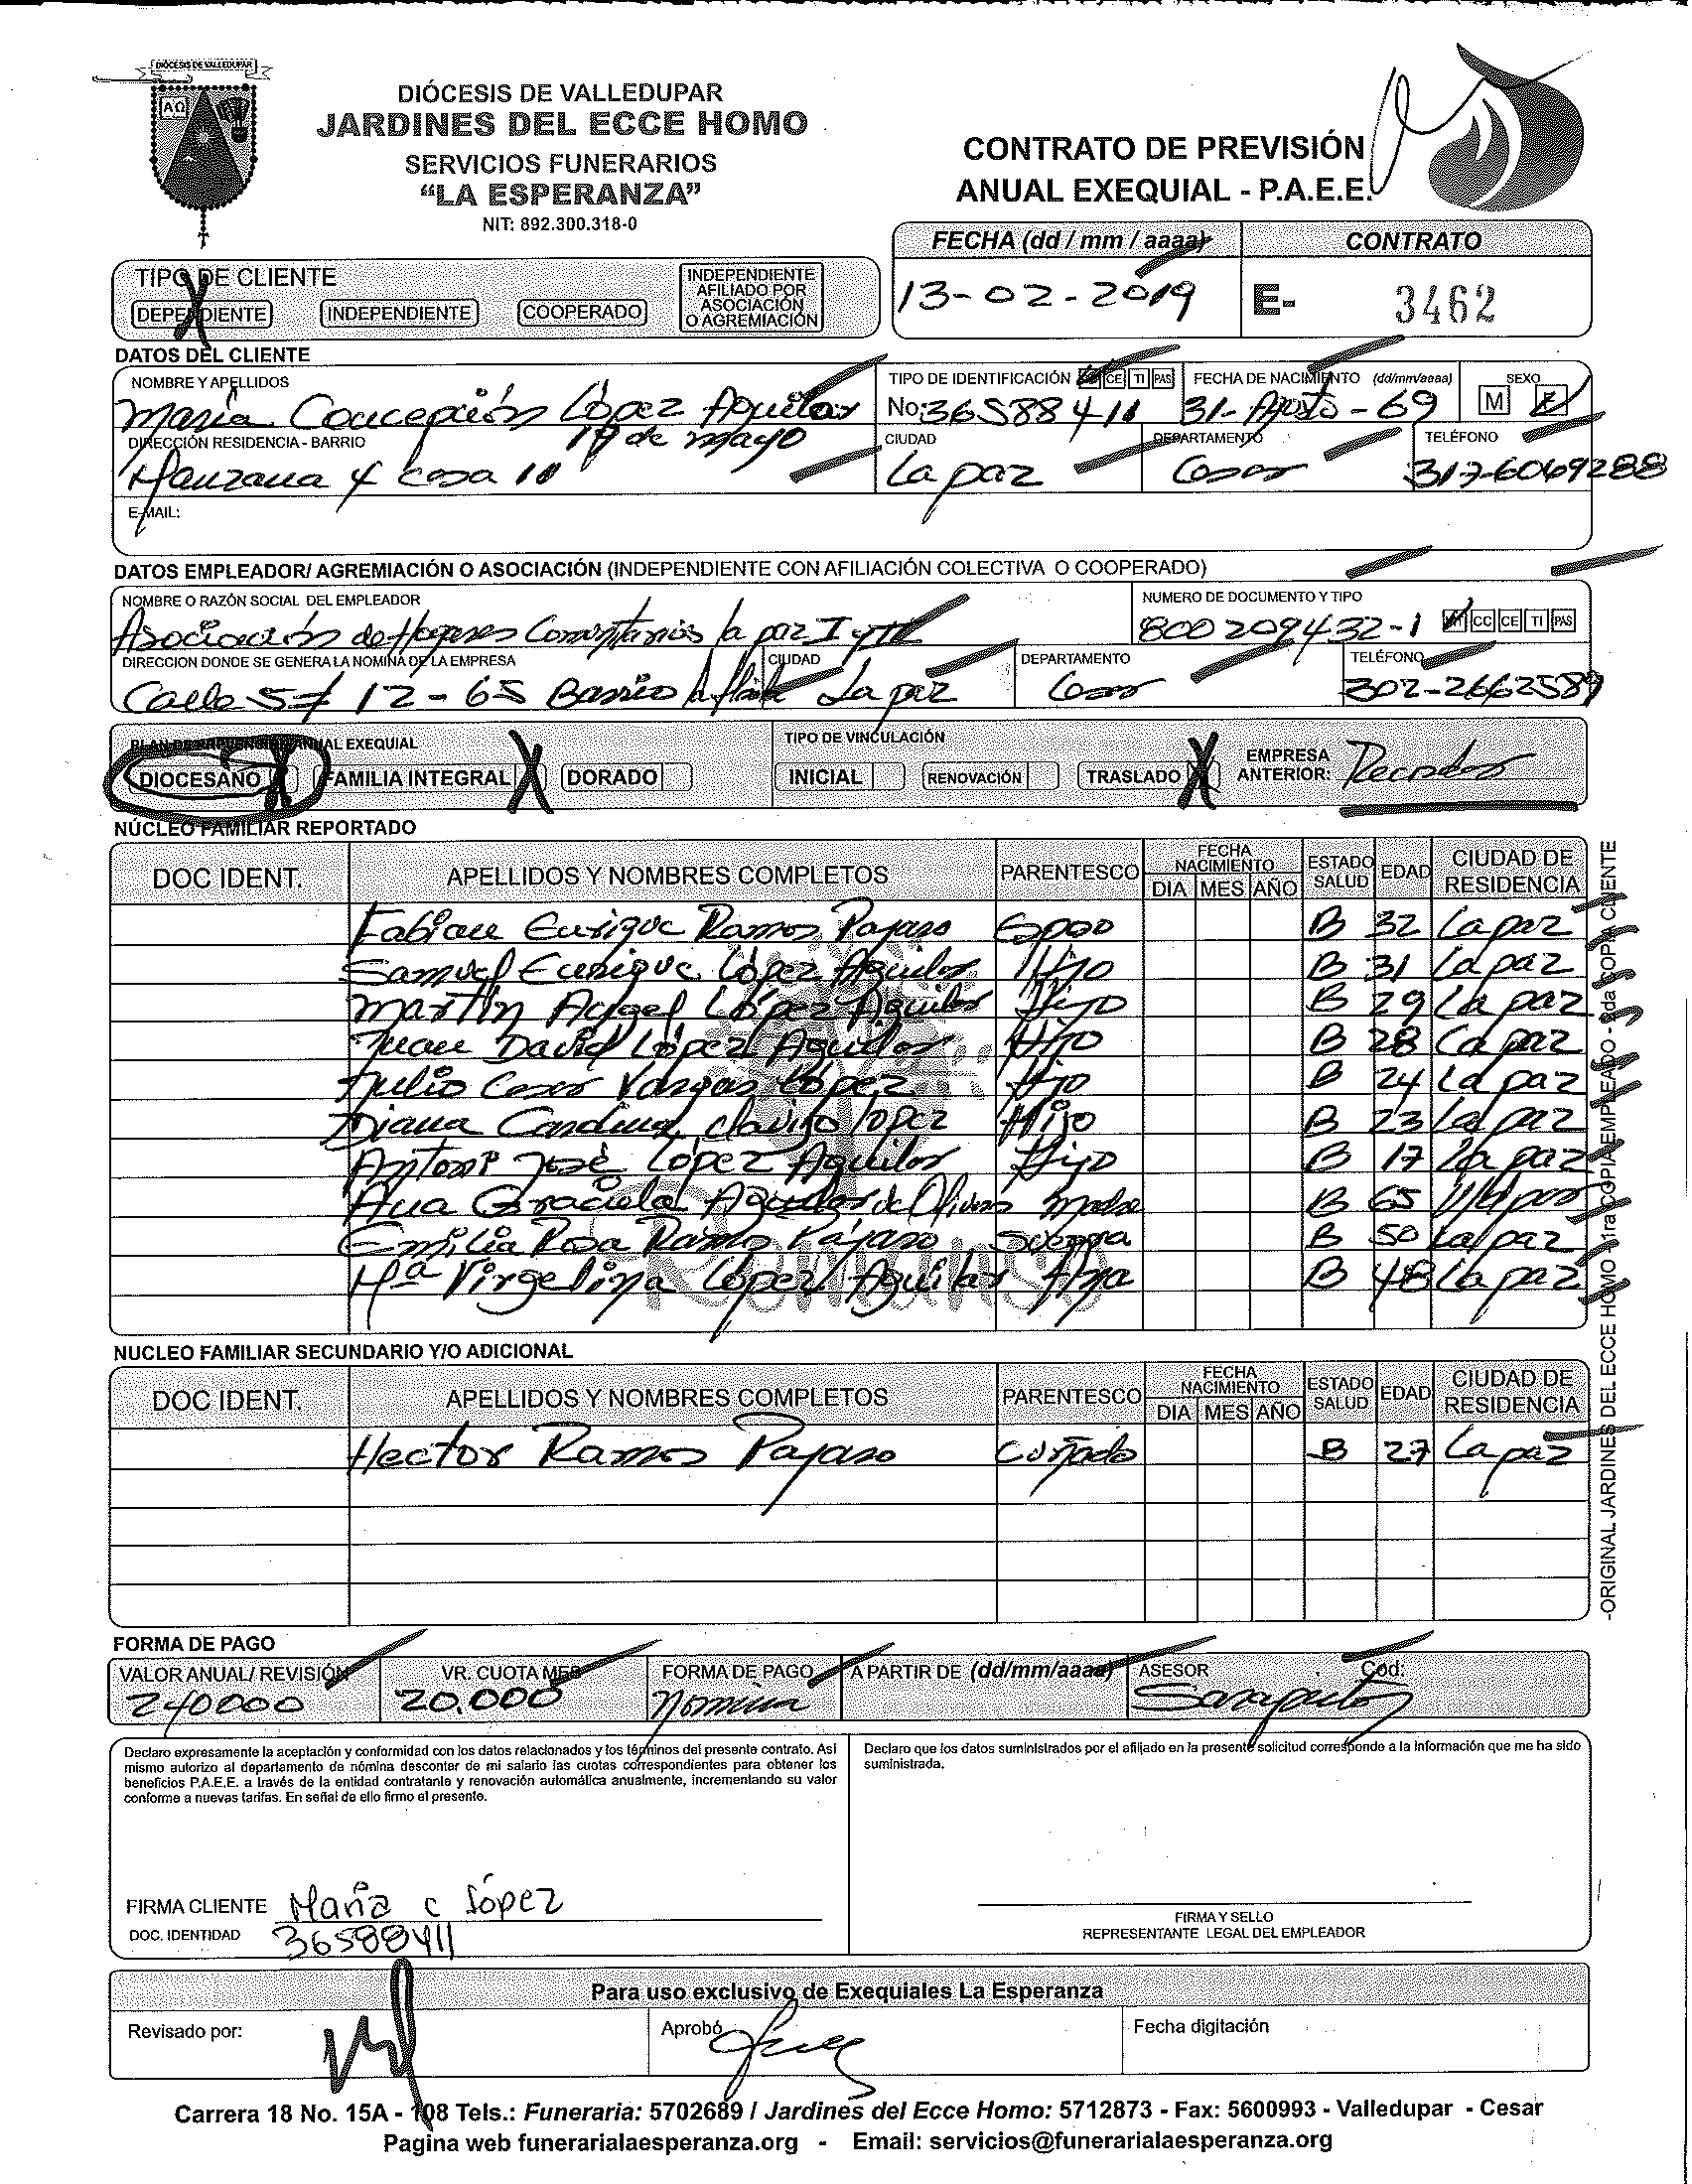 DIÓCESIS DE VALLEDUPAR
DIÓCESIS DE VALLEDUPAR
JARDINES DEL ECCE HOMO
SERVICIOS FUNERARIOS
“LA ESPERANZA”
NIT: 892.300.318-0
CONTRATO DE PREVISIÓN
ANUAL EXEQUIAL - P.A.E.E.
FECHA (dd / mm / aaaa) CONTRATO
13-02-2019 E- 3462
TIPO DE CLIENTE
DEPENDIENTE INDEPENDIENTE COOPERADO INDEPENDIENTE AFILIADO POR ASOCIACIÓN O AGREMIACIÓN
DATOS DEL CLIENTE
NOMBRE Y APELLIDOS TIPO DE IDENTIFICACIÓN CE TI PAS FECHA DE NACIMIENTO (dd/mm/aaaa) SEXO
María Concepción López Aguilar No: 36588411 31-Agosto-69 M F
DIRECCIÓN RESIDENCIA - BARRIO CIUDAD DEPARTAMENTO TELÉFONO
Manzana 4 casa 10 19 de mayo La paz Cesar 317-6069288
E-MAIL:
DATOS EMPLEADOR/ AGREMIACIÓN O ASOCIACIÓN (INDEPENDIENTE CON AFILIACIÓN COLECTIVA O COOPERADO)
NOMBRE O RAZÓN SOCIAL DEL EMPLEADOR NUMERO DE DOCUMENTO Y TIPO
Asociación de Hogares Comunitarios la paz I y II 800209432-1 CC CE TI PAS
DIRECCION DONDE SE GENERA LA NOMINA DE LA EMPRESA CIUDAD DEPARTAMENTO TELÉFONO
Calle 5 # 12-65 Barrio La paz Cesar 302-2662589
PLAN DE PREVENCIÓN ANUAL EXEQUIAL TIPO DE VINCULACIÓN
DIOCESANO FAMILIA INTEGRAL DORADO INICIAL RENOVACIÓN TRASLADO EMPRESA ANTERIOR: Recordar
NÚCLEO FAMILIAR REPORTADO
DOC IDENT. APELLIDOS Y NOMBRES COMPLETOS PARENTESCO FECHA NACIMIENTO DIA MES AÑO ESTADO SALUD EDAD CIUDAD DE RESIDENCIA
Fabian Enrique Ramos Pajaro Esposo B 32 La paz
Samuel Enrique López Aguilar Hijo B 31 La paz
Martín Angel López Aguilar Hijo B 29 La paz
Juan David López Aguilar Hijo B 28 La paz
Julio Cesar Vargas López Hijo B 24 La paz
Diana Carolina Clavijo lopez Hijo B 23 La paz
Antoni José López Aguilar Hijo B 17 La paz
Ana Graciela Aguilar de Olivero Madre B 65 V/dpar
Emilia Rosa Ramos Pájaro Suegra B 50 La paz
Mª Virgelina López Aguilar Hna B 48 La paz
NUCLEO FAMILIAR SECUNDARIO Y/O ADICIONAL
DOC IDENT. APELLIDOS Y NOMBRES COMPLETOS PARENTESCO FECHA NACIMIENTO DIA MES AÑO ESTADO SALUD EDAD CIUDAD DE RESIDENCIA
Hector Ramos Pajaro Cuñado B 27 La paz
-ORIGINAL JARDINES DEL ECCE HOMO - 1ra COPIA EMPLEADO - 2da COPIA CLIENTE
FORMA DE PAGO
VALOR ANUAL/ REVISIÓN VR. CUOTA MES FORMA DE PAGO A PARTIR DE (dd/mm/aaaa) ASESOR Cod:
240000 20.000 Nomina
Declaro expresamente la aceptación y conformidad con los datos relacionados y los términos del presente contrato. Asi
mismo autorizo al departamento de nómina descontar de mi salario las cuotas correspondientes para obtener los
beneficios P.A.E.E. a través de la entidad contratante y renovación automática anualmente, incrementando su valor
conforme a nuevas tarifas. En señal de ello firmo el presente.
Declaro que los datos suministrados por el afiliado en la presente solicitud corresponde a la información que me ha sido
suministrada.
FIRMA CLIENTE María c lópez
DOC. IDENTIDAD 36588411
FIRMA Y SELLO
REPRESENTANTE LEGAL DEL EMPLEADOR
Para uso exclusivo de Exequiales La Esperanza
Revisado por: Aprobó Fecha digitación
Carrera 18 No. 15A - 108 Tels.: Funeraria: 5702689 / Jardines del Ecce Homo: 5712873 - Fax: 5600993 - Valledupar - Cesar
Pagina web funerarialaesperanza.org - Email: servicios@funerarialaesperanza.org